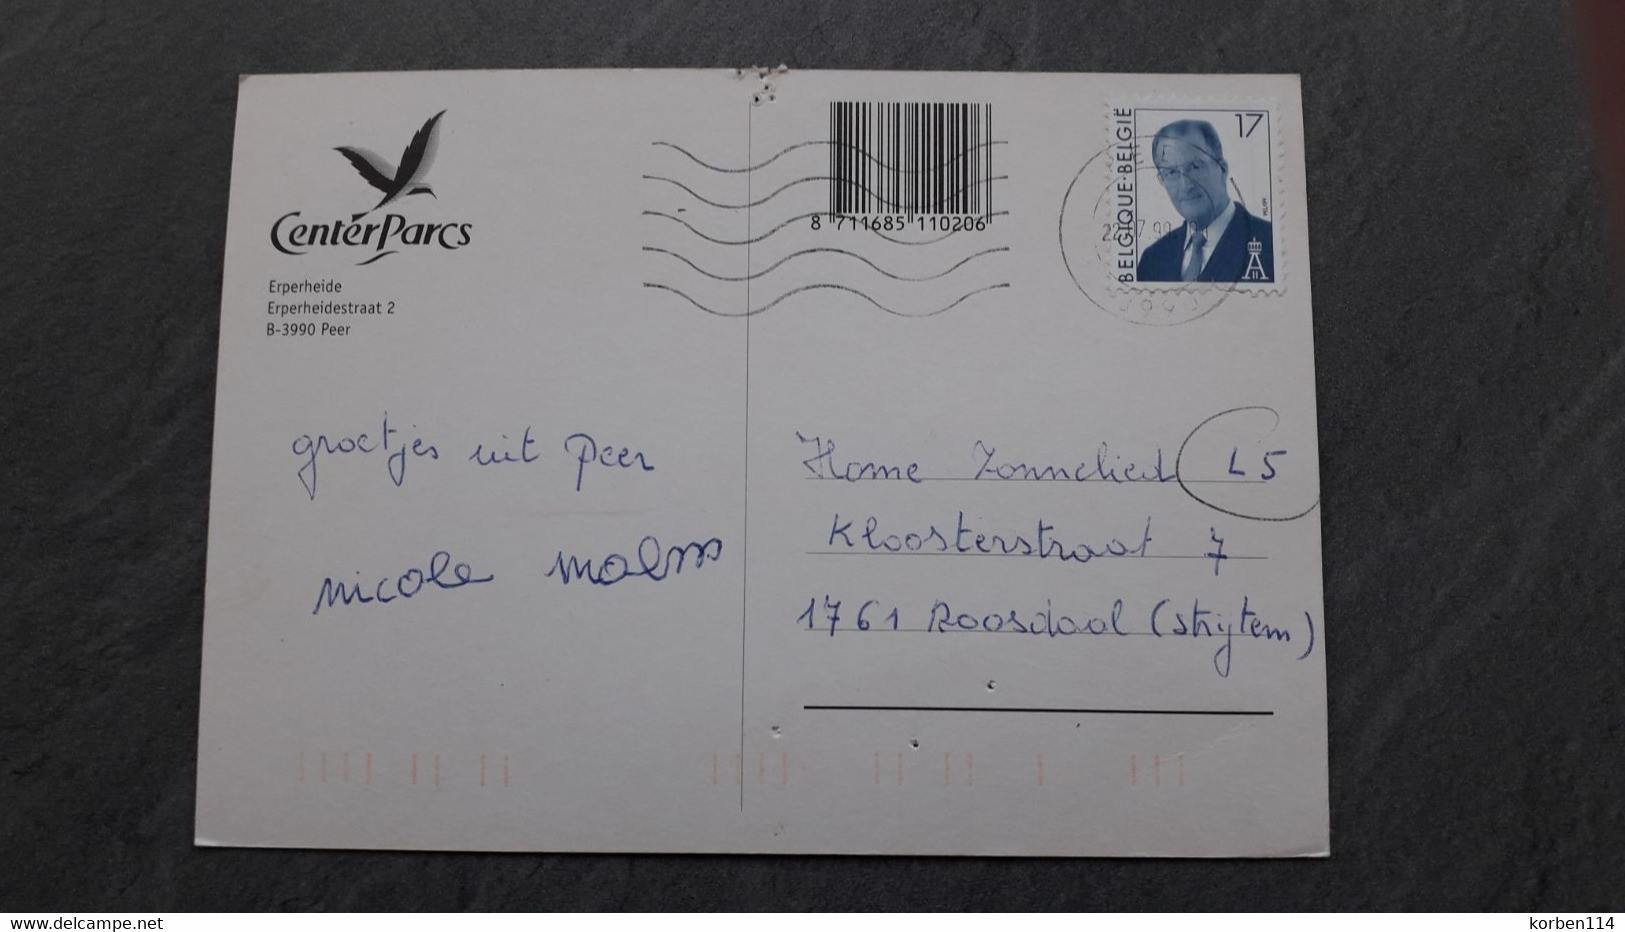 CenterParcs
Erperheide
Erperheidestraat 2
B-3990 Peer
groetjes uit Peer
nicole
8 711685 110206
BELGIQUE·BELGIË
17
22 7 99
Home Zonnelied L 5
Kloosterstraat 7
1761 Roosdaal (Strijtem)
www.delcampe.net
korben114